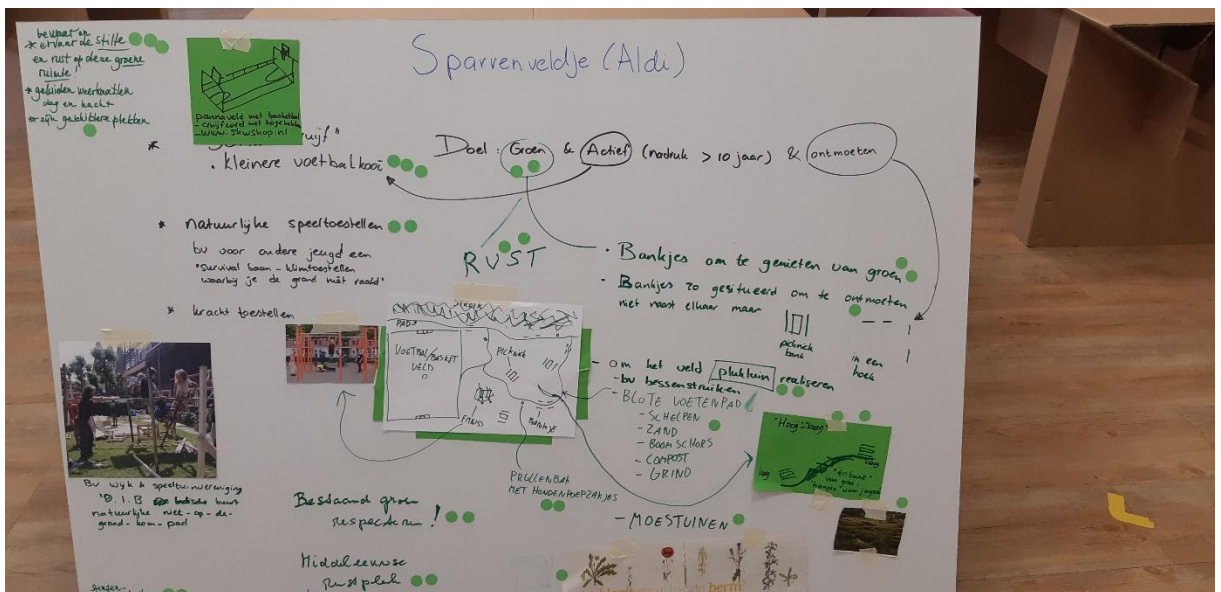 Sparrenveldje (Aldi)
bewaar en
* ervaar de stilte
en rust op deze groene
ruimte!
* geluiden weerkaatsen
dag en nacht
er zijn geschiktere plekken
pannaveld met basketbal
- cruijfcord met hoge hekken
- www.skwshop.nl
Doel: Groen & Actief (nadruk > 10 jaar) & ontmoeten
*
. kleinere voetbalkooi
* natuurlijke speeltoestellen
bv voor andere jeugd een
"survival baan - klimtoestellen
waarbij je de grond niet raakt"
* kracht toestellen
RUST
· Bankjes om te genieten van groen
· Bankjes zo gesitueerd om te ontmoeten
niet naast elkaar maar
picknick
bank
in een
hoek
PAD
VOETBAL/BASKET
VELD
PICKNICK
FITNESS
BANKJE
- om het veld pluktuin realiseren
- bv bessenstruiken
- BLOTE VOETENPAD
- SCHELPEN
- ZAND
- BOOMSCHORS
- COMPOST
- GRIND
"Hoog-laag"
laag
hoog
"tribune"
van gras
PRULLENBAK
MET HONDENPOEPZAKJES
- MOESTUINEN
Bv wijk & speeltuinvereniging
natuurlijke niet-op-de-
grond-kom-pad
Bestaand groen
respecteren!
Middeleeuwse
rustplek
berm